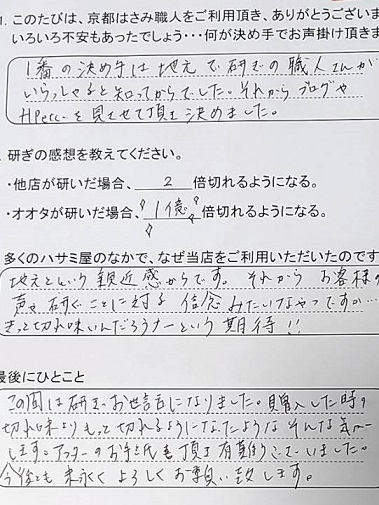 1. このたびは、京都はさみ職人をご利用頂き、ありがとうございま
いろいろ不安もあったでしょう・・・何が決め手でお声掛け頂きま
1番の決め手は地元で研ぎの職人さんが
いらっしゃると知ってからでした。それからブログや
HPetc…を見させて頂き決めました。
研ぎの感想を教えてください。
・他店が研いだ場合、 2 倍切れるようになる。
・オオタが研いだ場合、 1億 倍切れるようになる。
多くのハサミ屋のなかで、なぜ当店をご利用いただいたのです
地元という親近感からです。それからお客様の
声や研ぐことに対する信念みたいなやつですか…
きっと切れ味いいんだろうナーという期待!!
最後にひとこと
この間は研ぎでお世話になりました。購入した時の
切れ味よりもって切れるようになったような そんな気が
します。アフターのお手紙も頂き有難うございました。
今後とも末永くよろしくお願い致します。